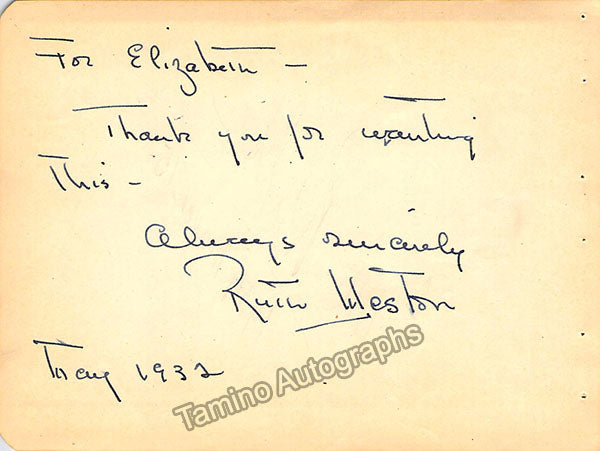 For Elizabeth —
Thank you for wanting
This —
Always sincerely
Ruth Weston
May 1932
Tamino Autographs